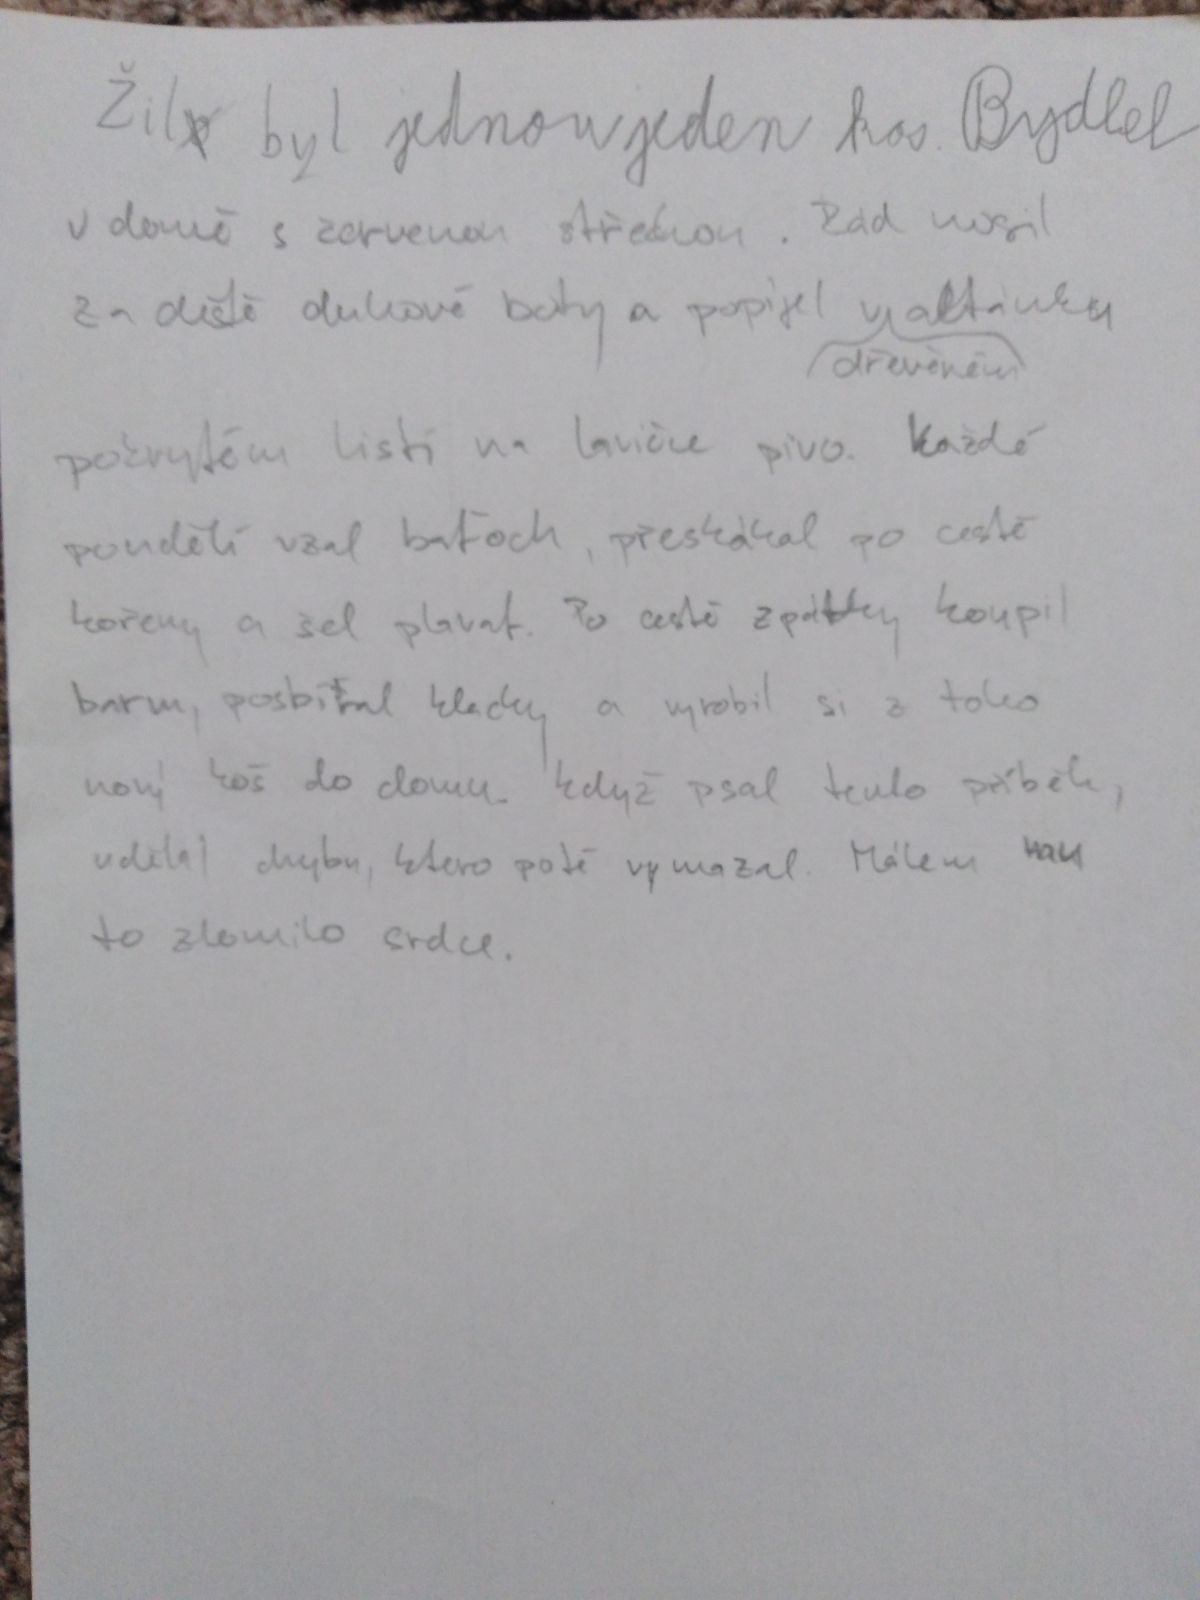 Žil byl jednou jeden kos. Bydlel
v domě s červenou střechou. Rád nosil
za deště duhové boty a popíjel v altánku
dřevěném
pokrytém listí na lavičce pivo. Každé
pondělí vzal baťoch, přeskákal po cestě
kořeny a šel plavat. Po cestě zpátky koupil
barvu, posbíral klacky a vyrobil si z toho
nový koš do domu. Když psal tento příběh,
udělal chybu, kterou poté vymazal. Málem mu
to zlomilo srdce.